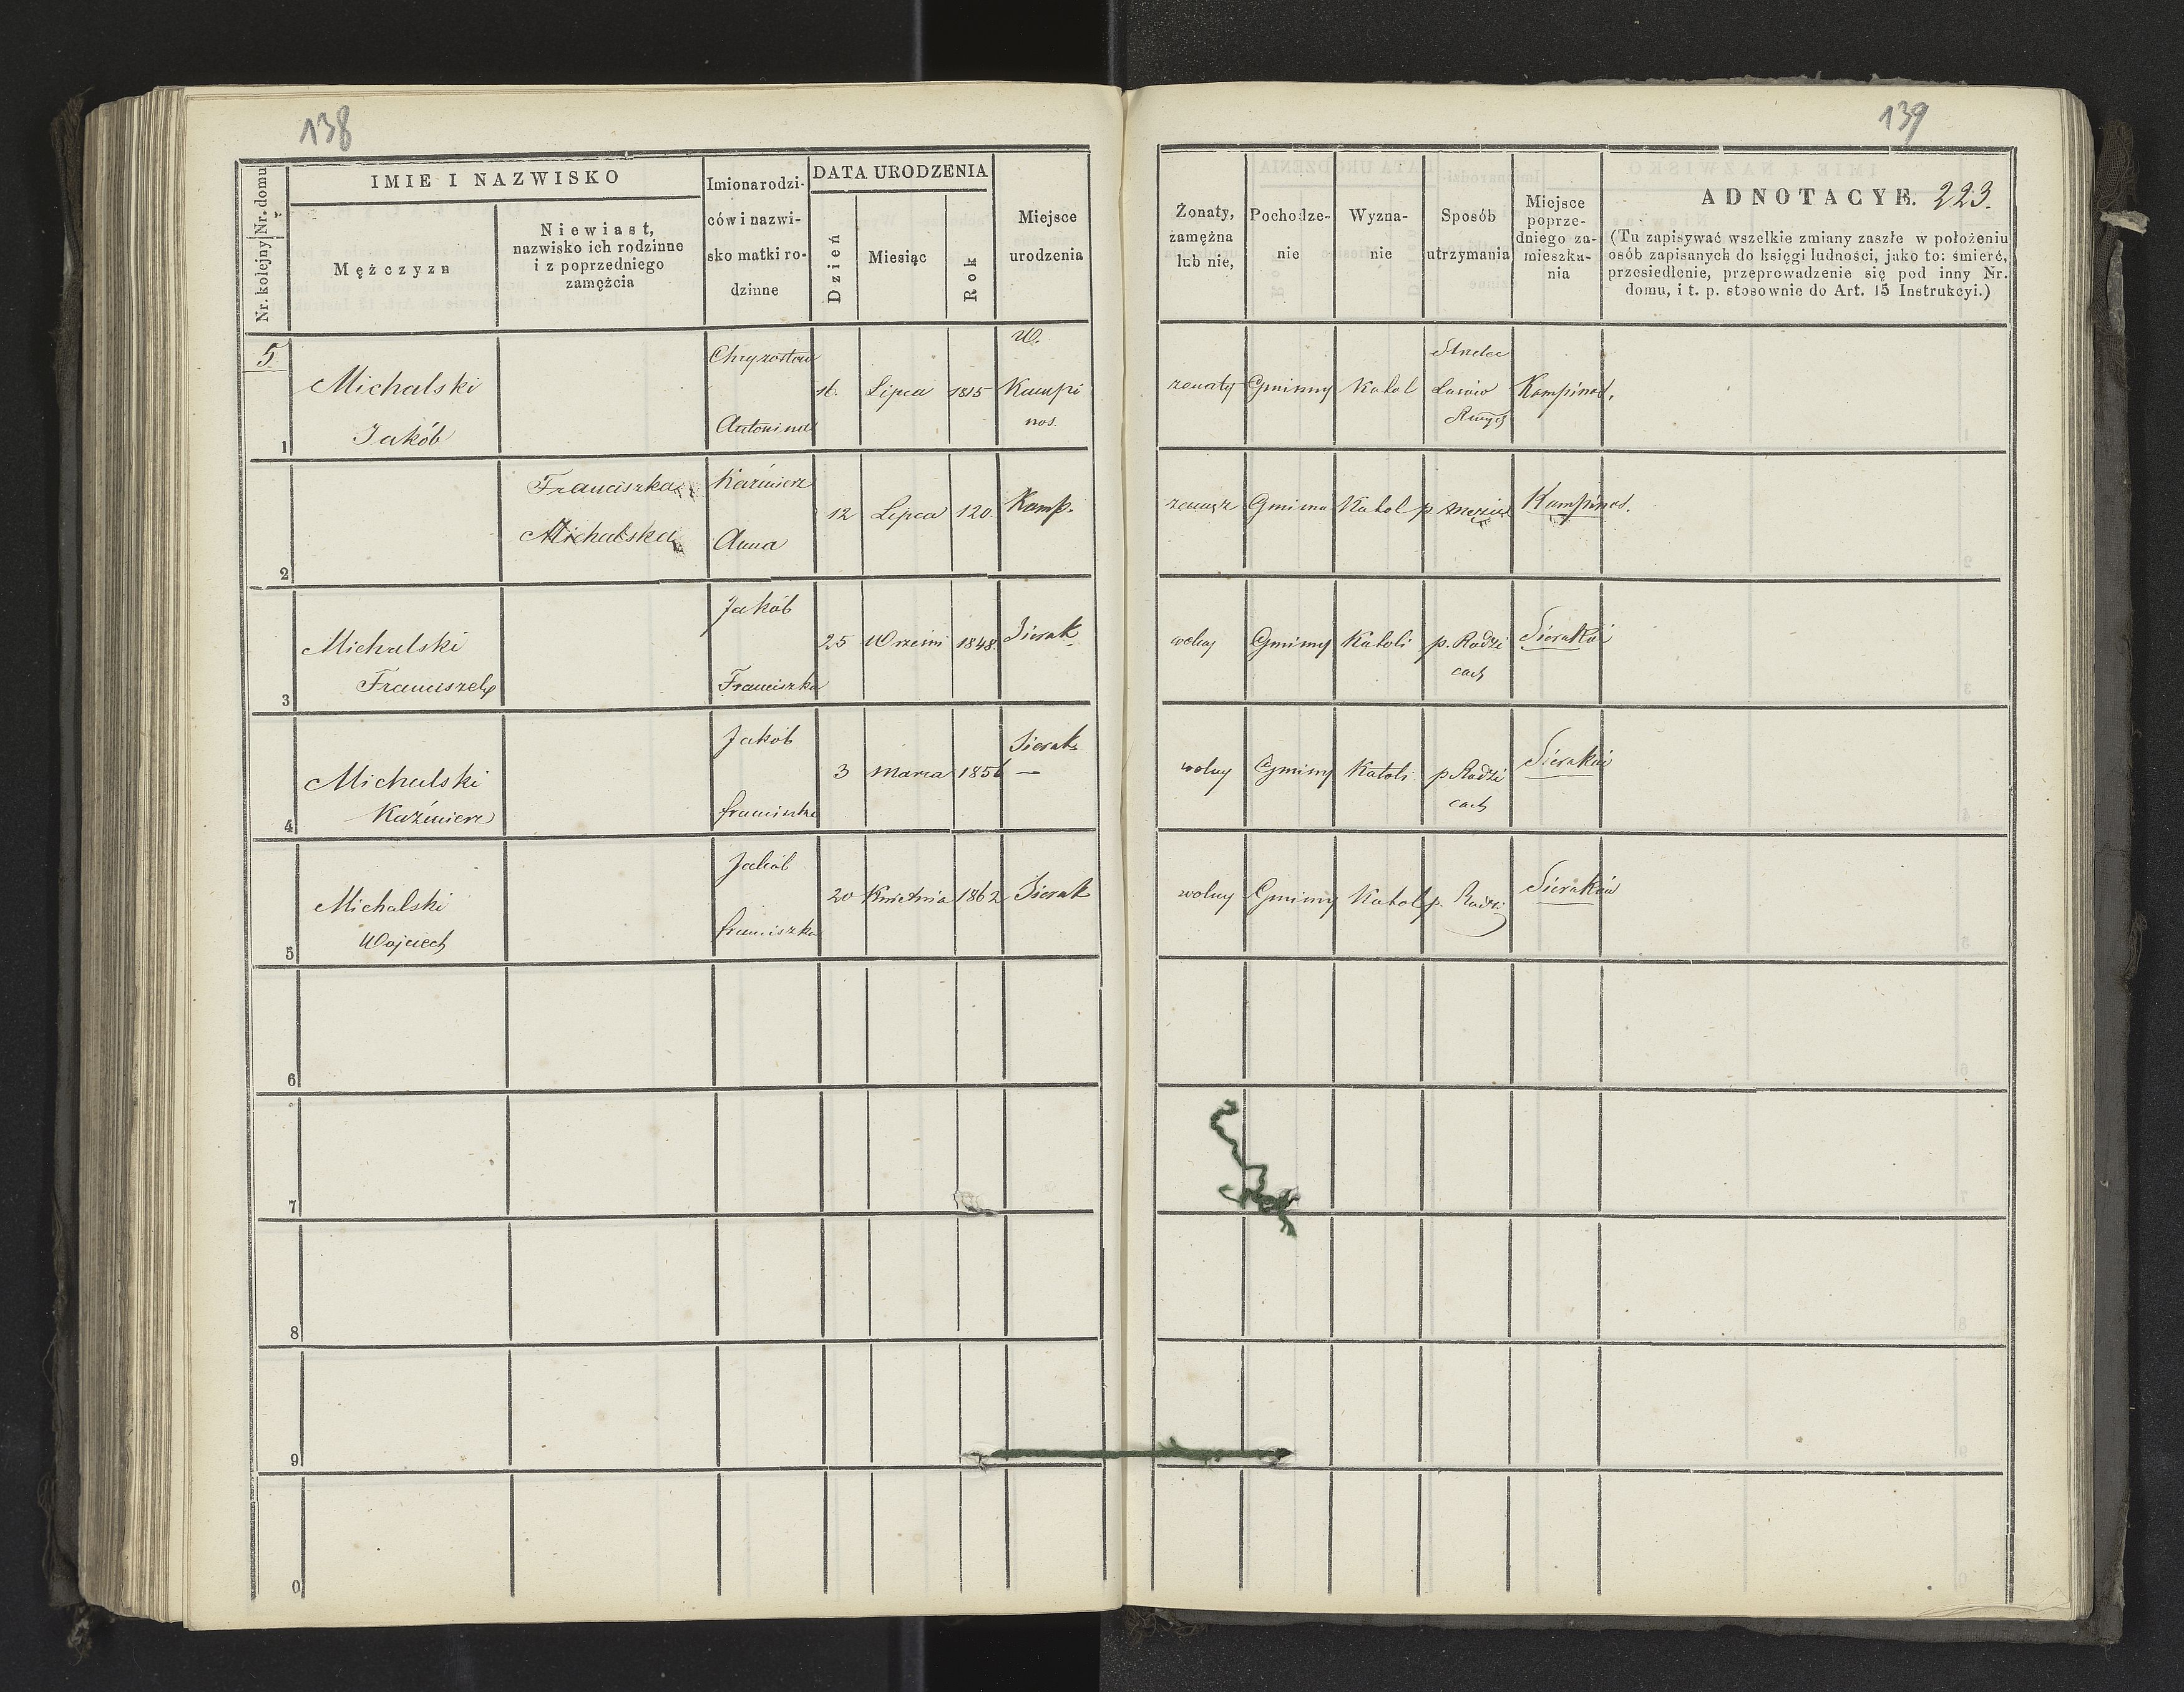 138
Nr. kolejny Nr. domu
IMIE I NAZWISKO
Mężczyzn
Niewiast,
nazwisko ich rodzinne
i z poprzedniego
zamęźcia
Imiona rodzi-
ców i nazwi-
sko matki ro-
dzinne
DATA URODZENIA
Dzień
Miesiąc
Rok
Miejsce
urodzenia
5
1
Michalski
Jakób
Chryzostom
Antonina
16.
Lipca
1815
W.
Kampi
nos.
2
Franciszka
Michalska
Kaźmierz
Anna
12
Lipca
120.
Kamp.
3
Michalski
Franciszek
Jakób
Franciszka
25
Wrześni
1848.
Sierak.
4
Michalski
Kaźmierz
Jakób
franciszka
3
Marca
1856
Sierak
—
5
Michalski
Wojciech
Jakób
franciszka
20
Kwietnia
1862
Sierak
6
7
8
9
0
139
Żonaty,
zamężna
lub nie,
Pochodze-
nie
Wyzna-
nie
Sposób
utrzymania
Miejsce
poprze-
dniego za-
mieszka-
nia
ADNOTACYE. 223.
(Tu zapisywać wszelkie zmiany zaszłe w położeniu
osób zapisanych do księgi ludności, jako to: śmierć,
przesiedlenie, przeprowadzenie się pod inny Nr.
domu, i t. p. stosownie do Art. 15 Instrukcyi.)
żonaty
Gminny
Katol
Strzelec
Lasów
Kampinos.
Gminna
Katol
p. mężu
Kampinos.
wolny
Gminny
Katoli
p. Rodzi
cach
Sieraków
wolny
Gminny
Katoli
p Rodzi
cach
Sieraków
wolny
Gminny
Katol
p. Rodzi
Sieraków